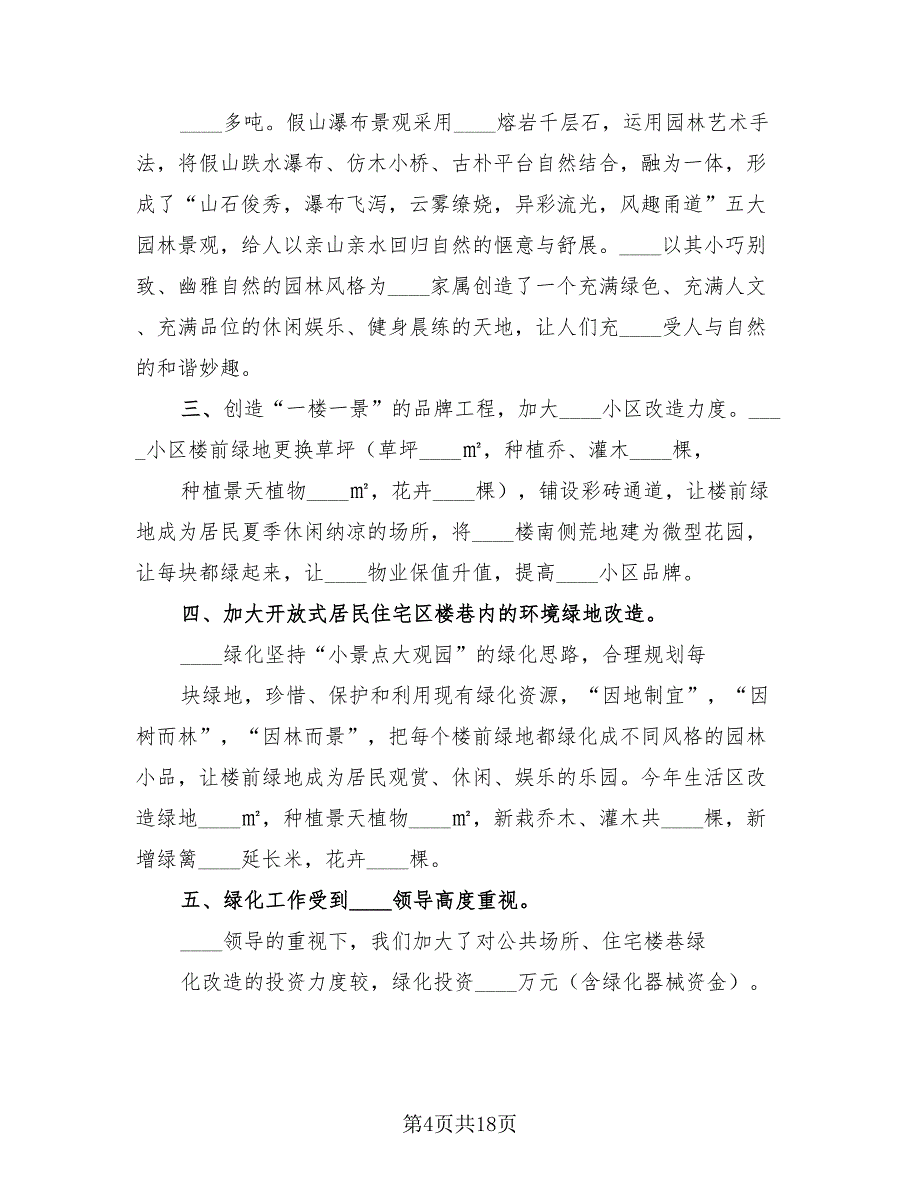 ____多吨。假山瀑布景观采用____熔岩千层石，运用园林艺术手
法，将假山跌水瀑布、仿木小桥、古朴平台自然结合，融为一体，形
成了“山石俊秀，瀑布飞泻，云雾缭娆，异彩流光，风趣甬道”五大
园林景观，给人以亲山亲水回归自然的惬意与舒展。____以其小巧别
致、幽雅自然的园林风格为____家属创造了一个充满绿色、充满人文
、充满品位的休闲娱乐、健身晨练的天地，让人们充____受人与自然
的和谐妙趣。
三、创造“一楼一景”的品牌工程，加大____小区改造力度。___
_小区楼前绿地更换草坪（草坪____㎡，种植乔、灌木____棵，
种植景天植物____㎡，花卉____棵），铺设彩砖通道，让楼前绿
地成为居民夏季休闲纳凉的场所，将____楼南侧荒地建为微型花园，
让每块都绿起来，让____物业保值升值，提高____小区品牌。
四、加大开放式居民住宅区楼巷内的环境绿地改造。
____绿化坚持“小景点大观园”的绿化思路，合理规划每
块绿地，珍惜、保护和利用现有绿化资源，“因地制宜”，“因
树而林”，“因林而景”，把每个楼前绿地都绿化成不同风格的园林
小品，让楼前绿地成为居民观赏、休闲、娱乐的乐园。今年生活区改
造绿地____㎡，种植景天植物____㎡，新栽乔木、灌木共____棵，新
增绿篱____延长米，花卉____棵。
五、绿化工作受到____领导高度重视。
____领导的重视下，我们加大了对公共场所、住宅楼巷绿
化改造的投资力度较，绿化投资____万元（含绿化器械资金）。
第4页共18页